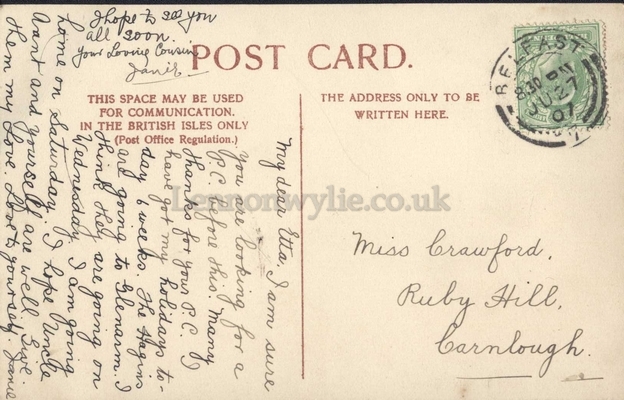 I hope to see you
all soon.
Your Loving Cousin
Janie
POST CARD.
THIS SPACE MAY BE USED
FOR COMMUNICATION.
IN THE BRITISH ISLES ONLY
(Post Office Regulation.)
THE ADDRESS ONLY TO BE
WRITTEN HERE.
BELFAST
8 30 PM
JU 21
07
My dear Etta, I am sure
you are looking for a
P.C. before this. Many
thanks for your P.C. I
have got my holidays to-
day 6 weeks. The Hagins
are going to Glenarm. I
think they are going on
Wednesday. I am going
home on Saturday. I hope Uncle
Aunt and yourself are well. Give
them my Love. Love to yourself. Janie
Miss Crawford,
Ruby Hill,
Carnlough.
Lennonwylie.co.uk